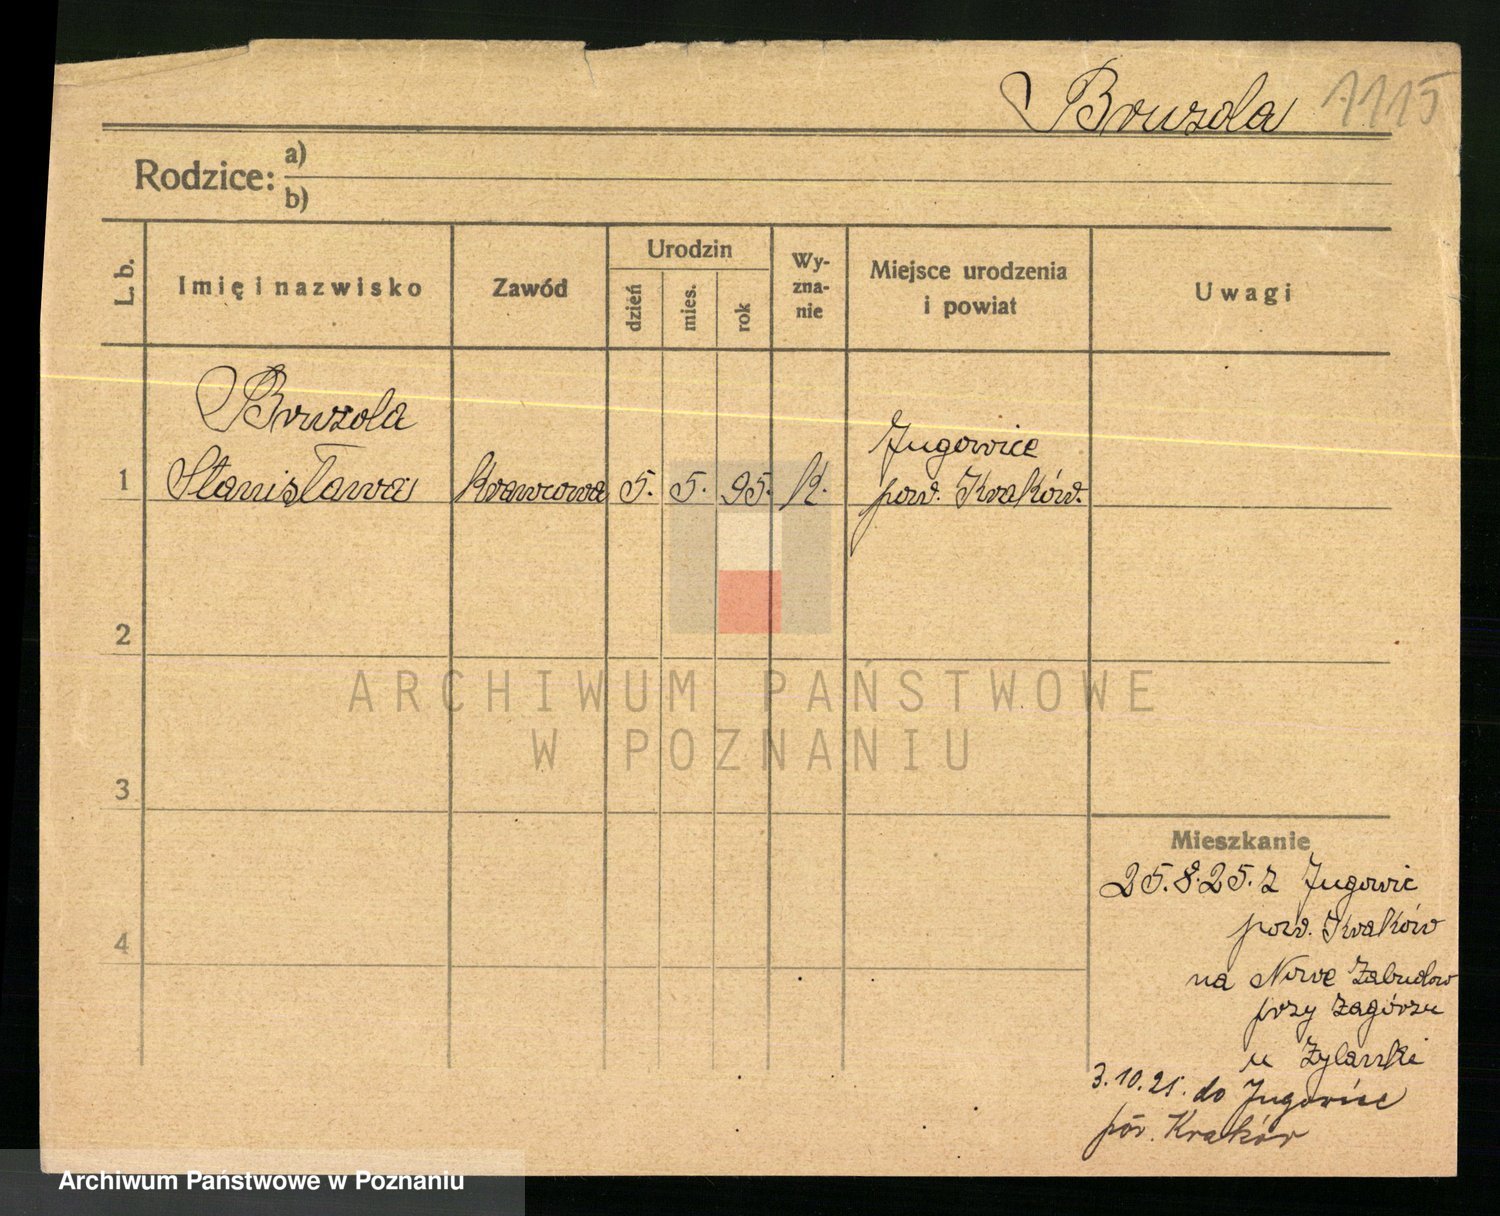 Bruzda 1115
Rodzice: a)
b)
L. b. Imię i nazwisko Zawód Urodzin dzień mies. rok Wyznanie Miejsce urodzenia i powiat Uwagi
Bruzda
Stanisława
1 Krawcowa 5. 5. 95. K. Jugowice
pow. Kraków.
2
3
4
Mieszkanie
25.8.25. z Jugowic
pow. Kraków
na Nowe Zabudow
przy Zagórzu
u
3.10.25. do Jugowice
pow. Kraków
ARCHIWUM PAŃSTWOWE
W POZNANIU
Archiwum Państwowe w Poznaniu